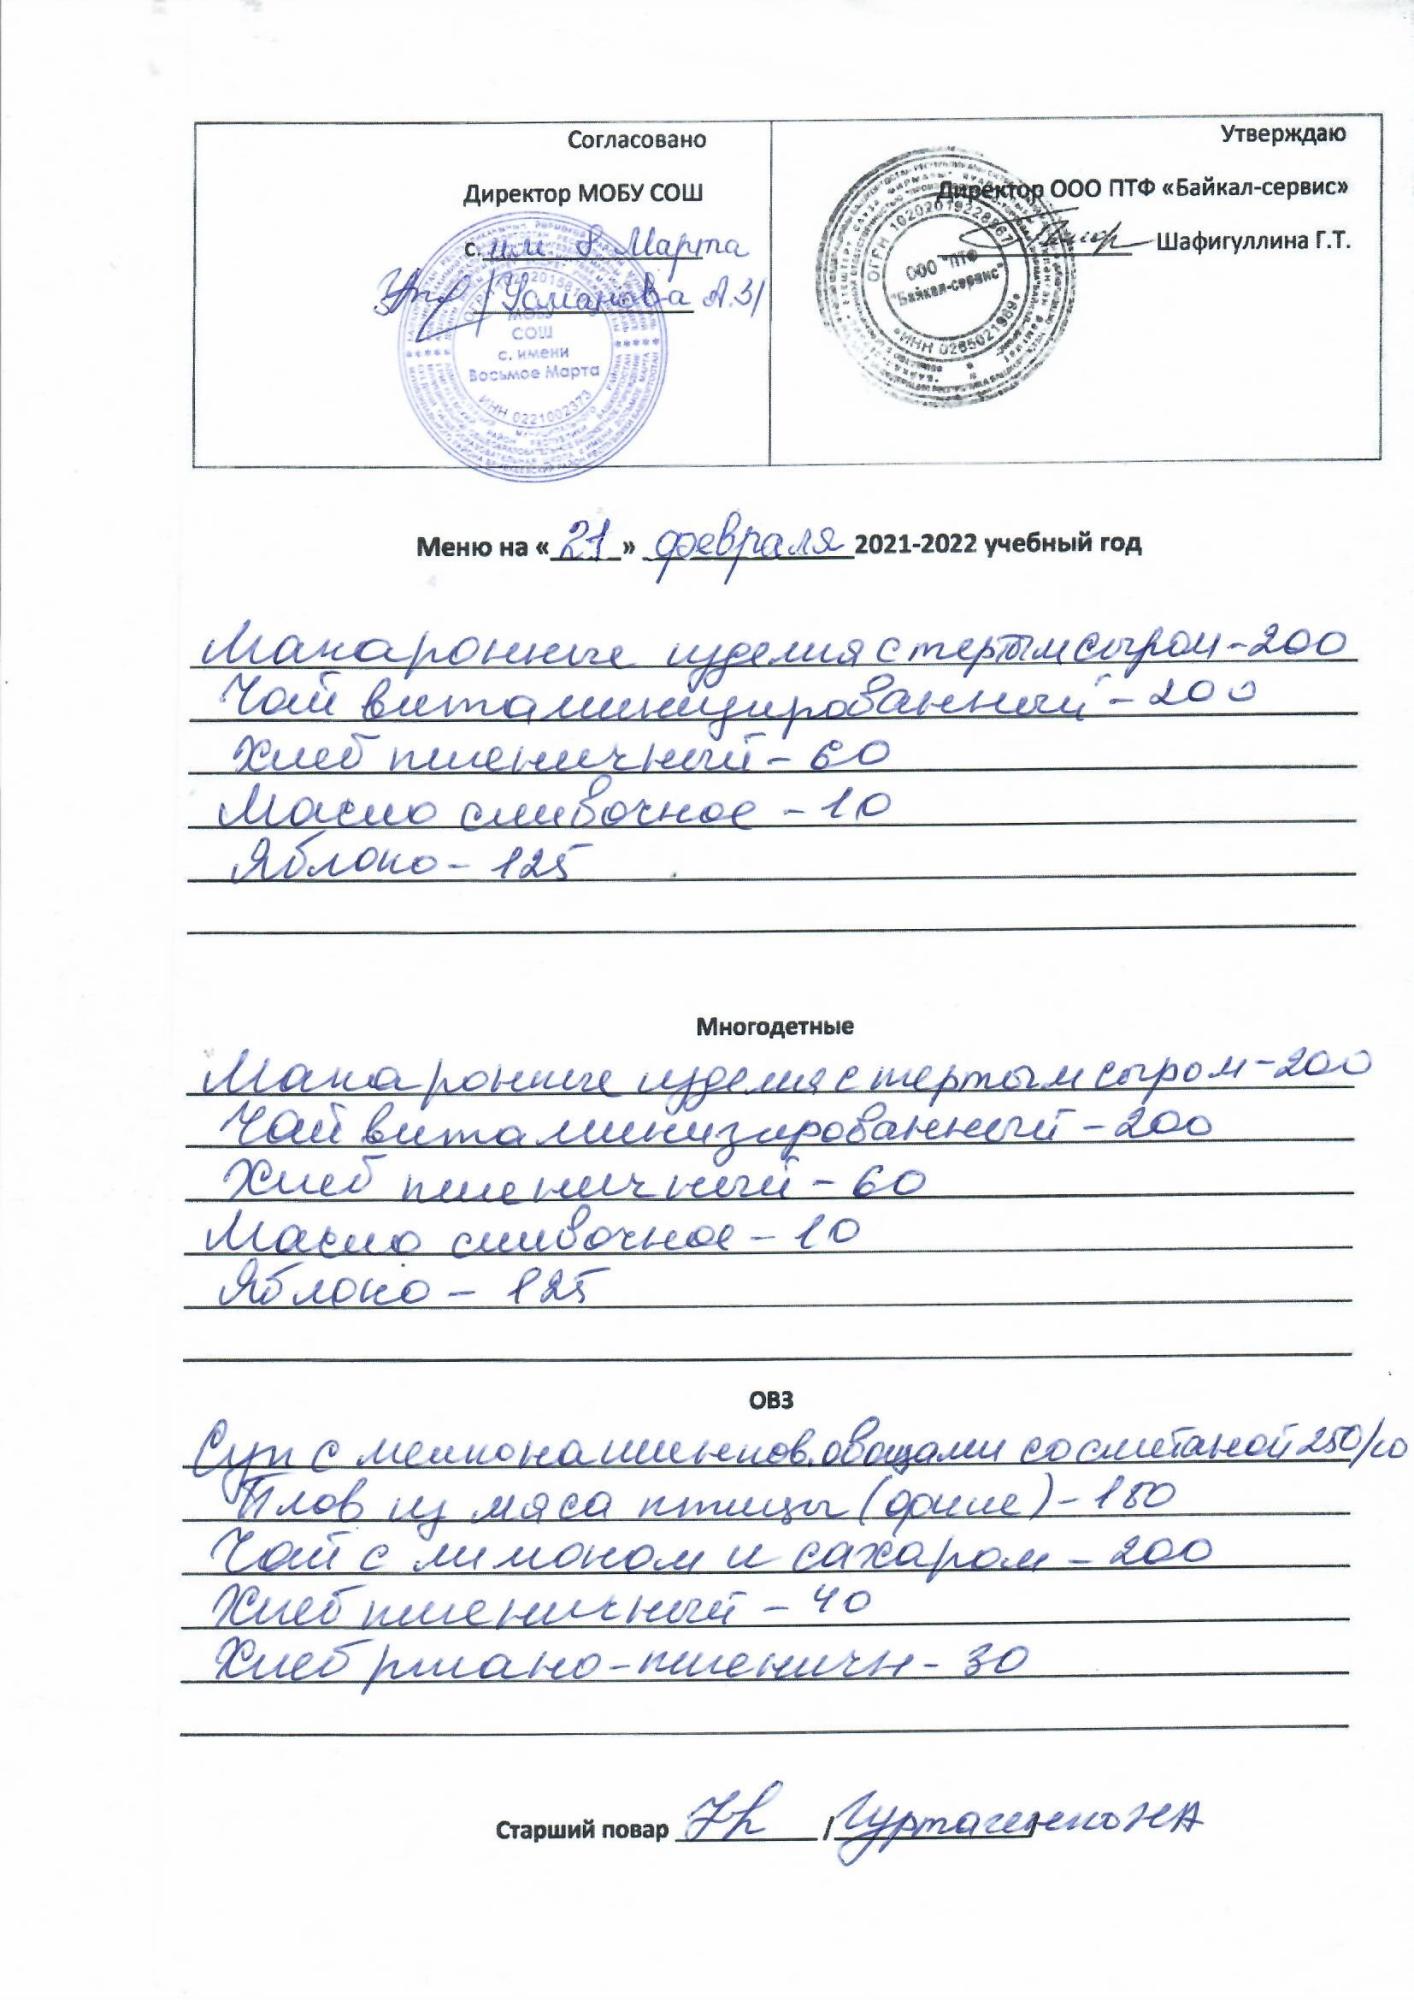 Согласовано
Директор МОБУ СОШ
с. им. 8 Марта
/Усманова А.З/
МОБУ
СОШ
с. имени
Восьмое Марта
ИНН 0221002373
Утверждаю
Директор ООО ПТФ «Байкал-сервис»
Шафигуллина Г.Т.
ООО "ПТФ
"Байкал-сервис"
Меню на «21» февраля 2021-2022 учебный год
Макаронные изделия с тертым сыром - 200
Чай витаминизированный - 200
Хлеб пшеничный - 60
Масло сливочное - 10
Яблоко - 125
Многодетные
Макаронные изделия с тертым сыром - 200
Чай витаминизированный - 200
Хлеб пшеничный - 60
Масло сливочное - 10
Яблоко - 125
ОВЗ
Суп с мелконашинков. овощами со сметаной 250/10
Плов из мяса птицы (филе) - 180
Чай с лимоном и сахаром - 200
Хлеб пшеничный - 40
Хлеб ржано-пшеничн - 30
Старший повар / НА